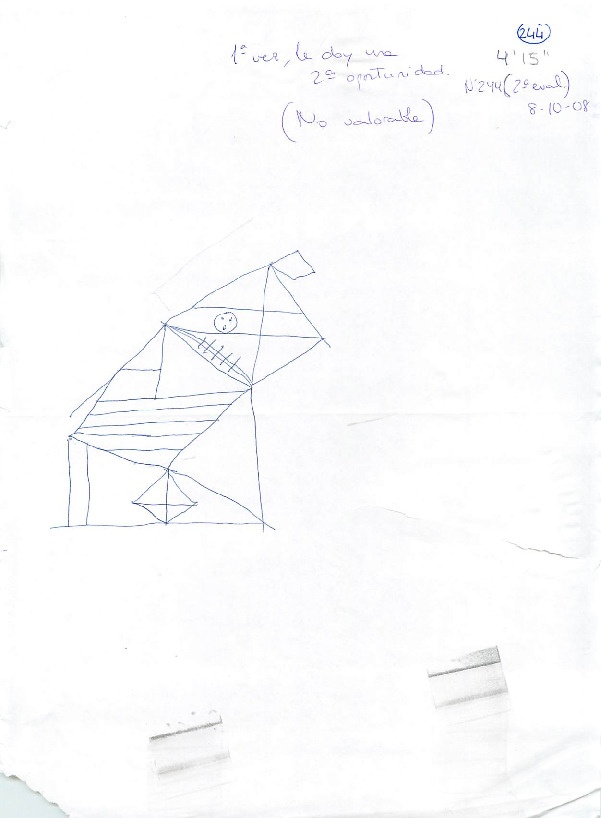 244
1ª vez, le doy una
2ª oportunidad.
(No valorable)
4'15"
Nº244 (2ª eval.)
8-10-08